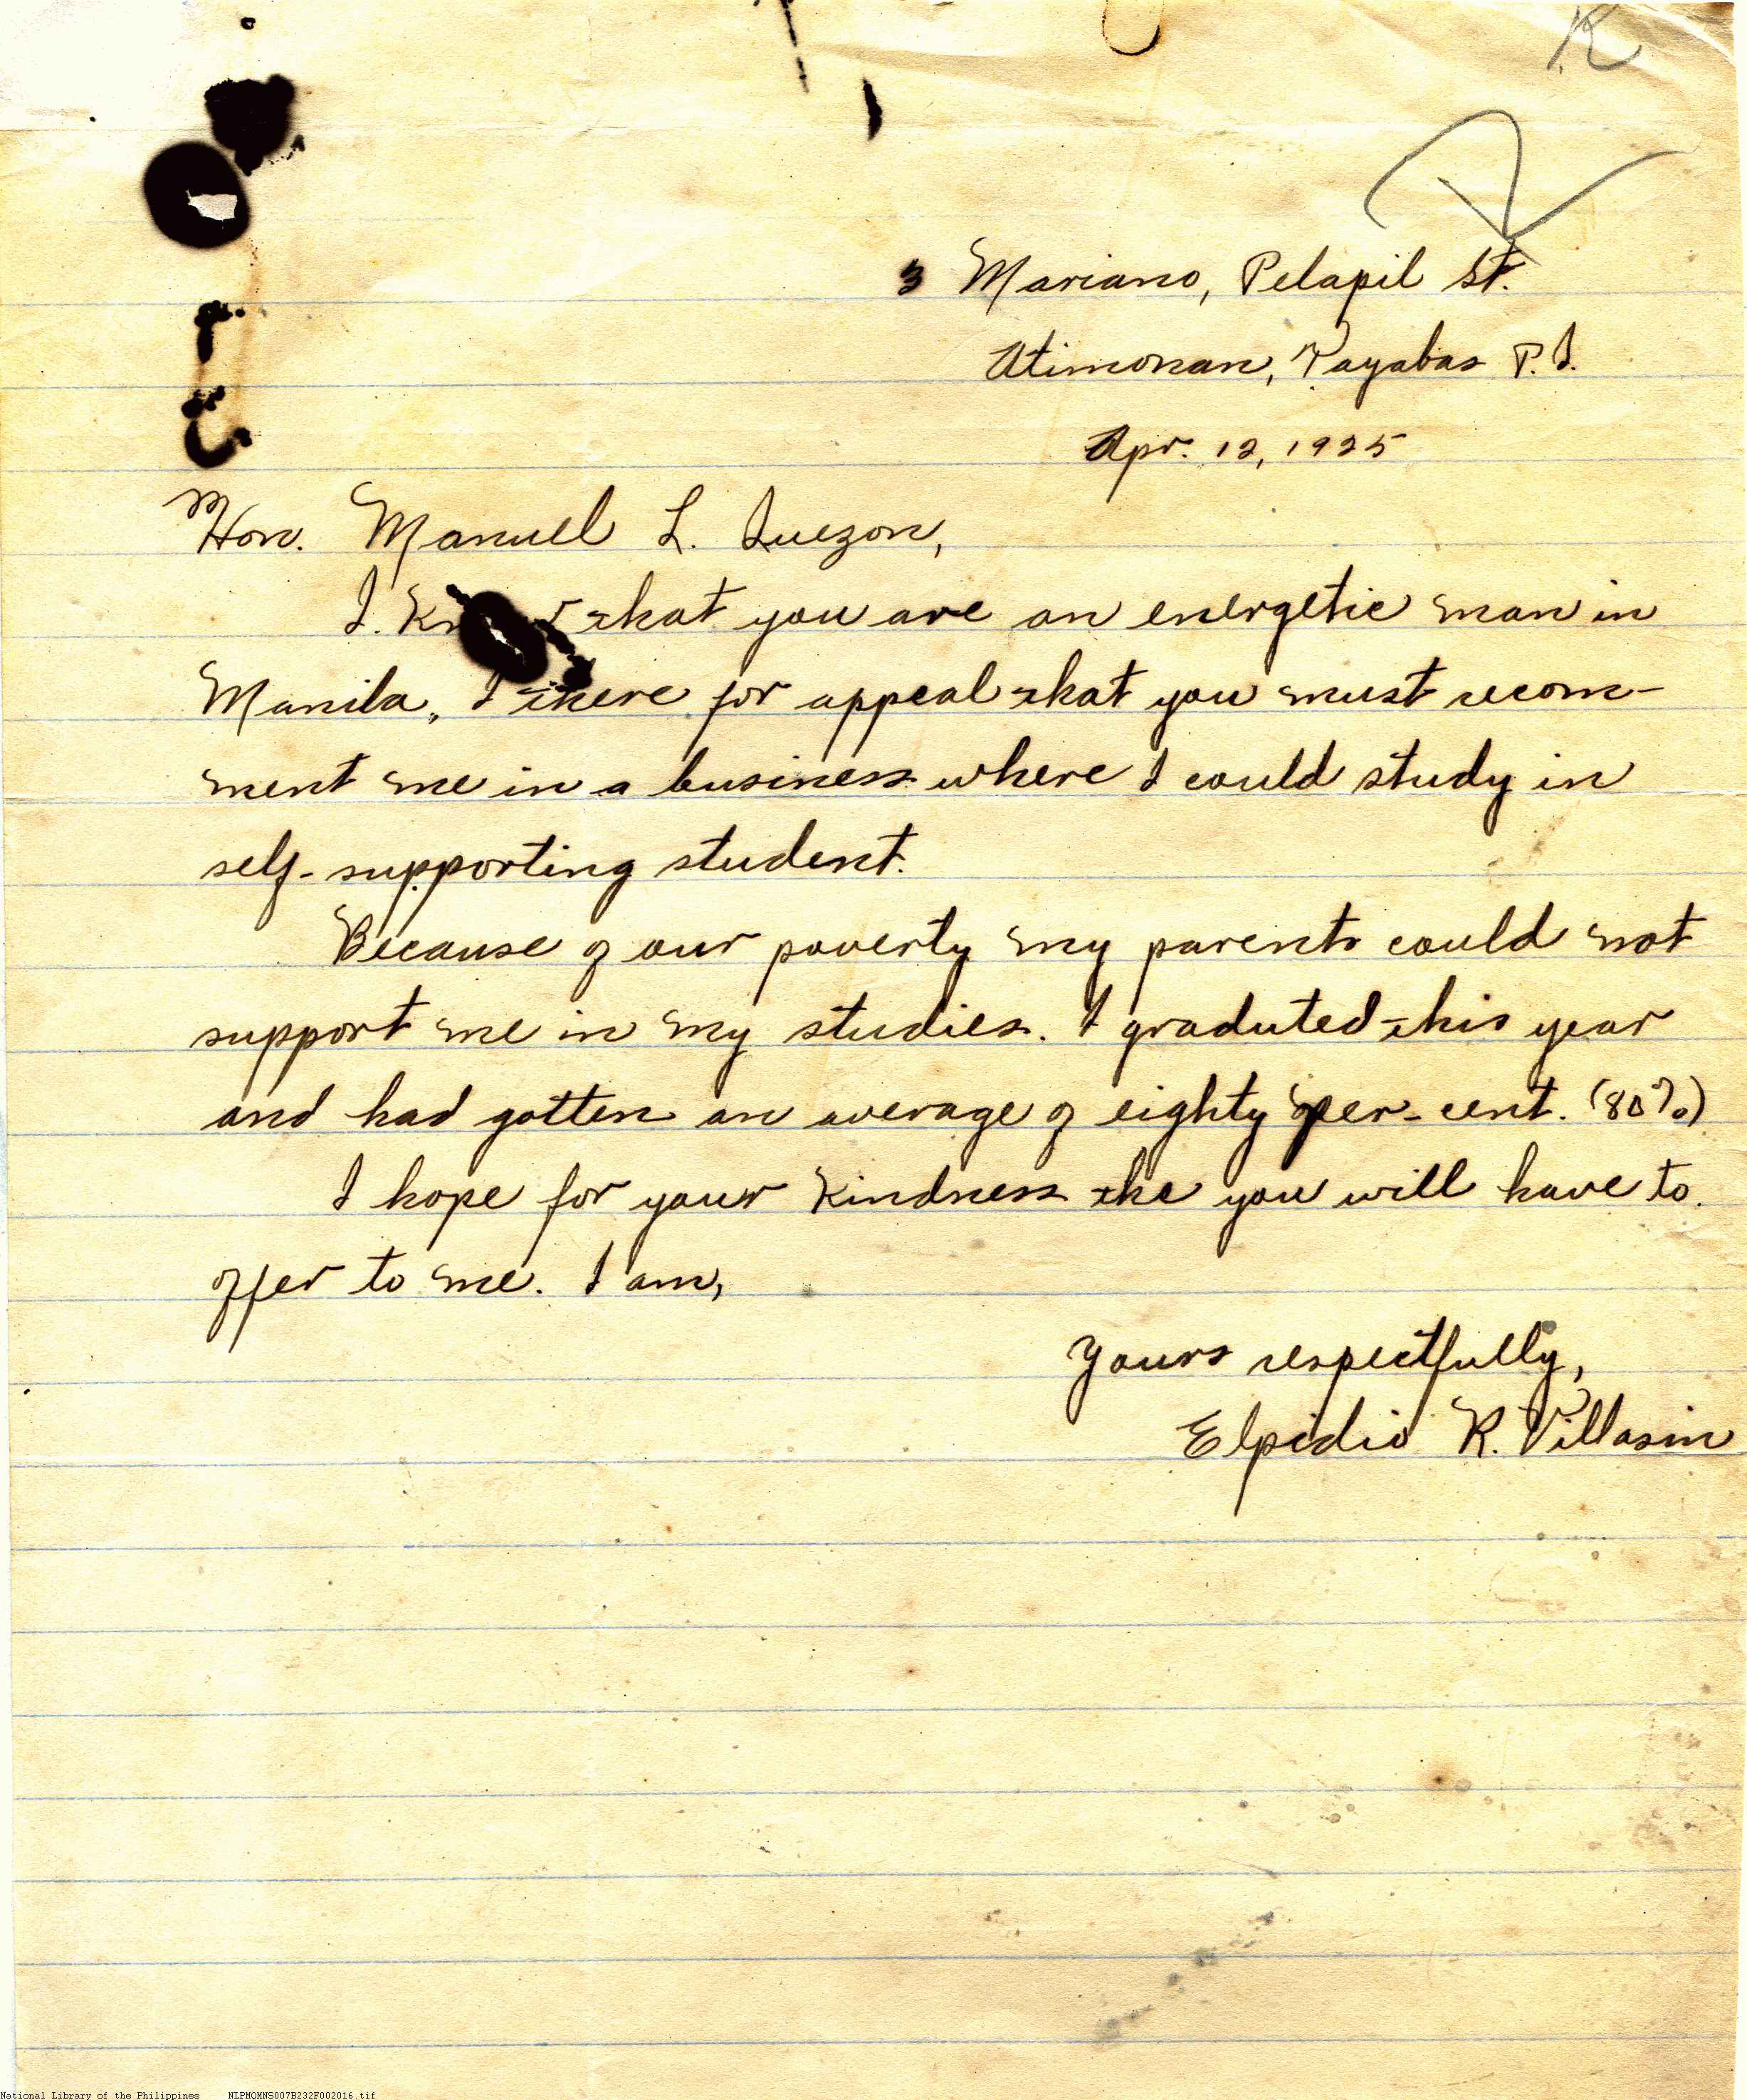 R
3 Mariano, Pelapil St.
Atimonan, Tayabas P.I.
Apr. 12, 1925
Hon. Manuel L. Quezon,
I. that you are an energetic man in
Manila, I there for appeal that you must recom-
ment me in a business where I could study in
self-supporting student.
Because of our poverty my parents could not
support me in my studies. I graduted this year
and had gotten an average of eighty per-cent. (80%)
I hope for your kindness the you will have to.
offer to me. I am,
Yours respectfully,
Elpidio R. Villasin
National Library of the Philippines NLPMQMNS007B232F002016.tif